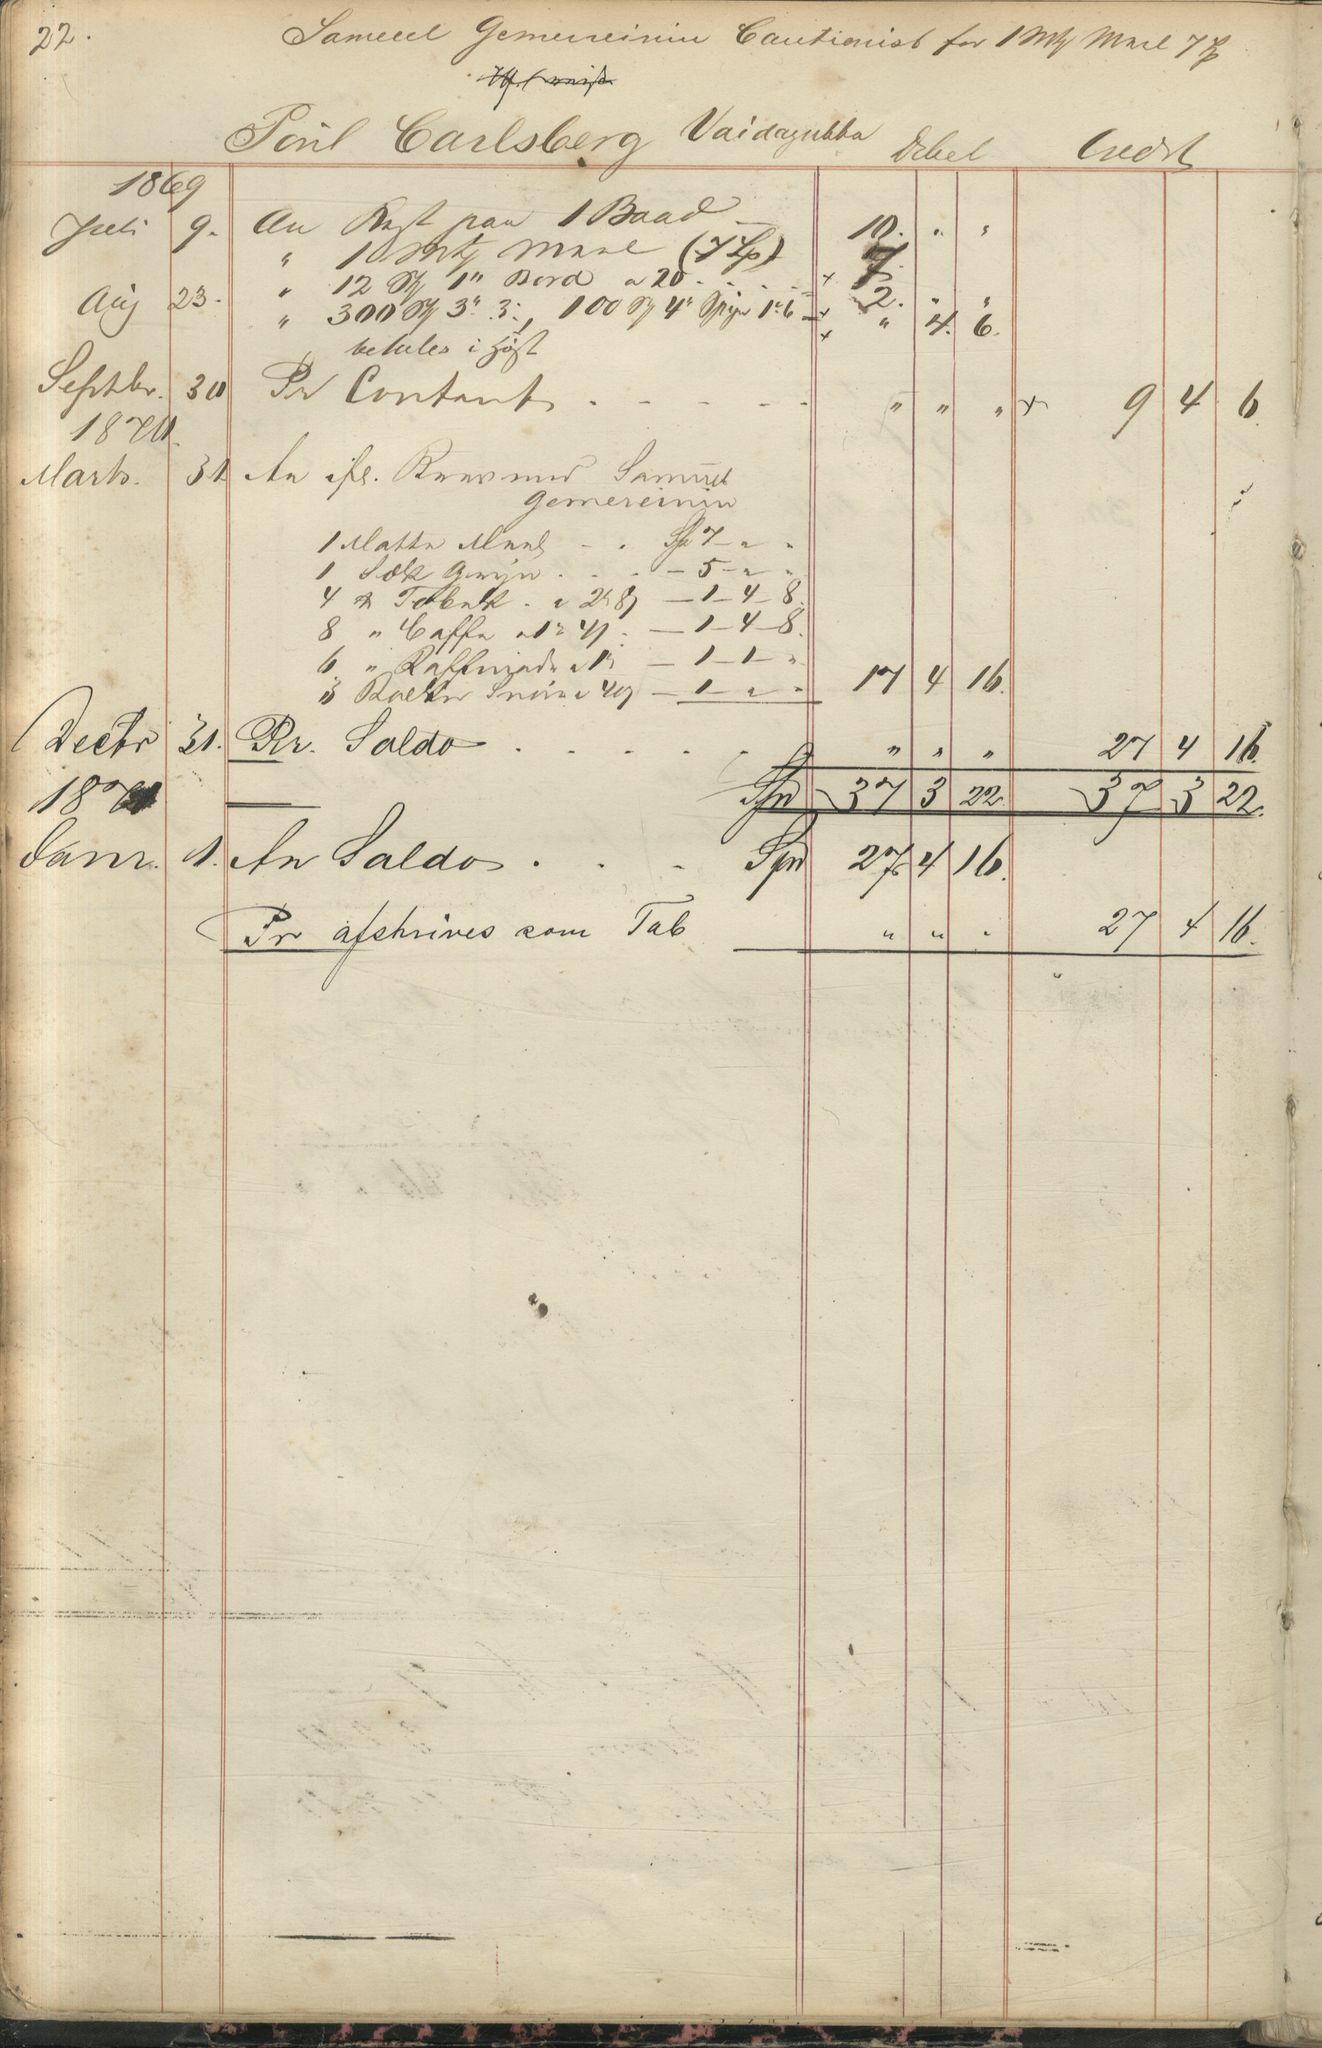 22.
Samuel Gemereinin Cautionist for 1 Mtt Meel 7 Sp
Påul Carlsberg Vaidagubba Debet Credit
1869
Juli 9. An Rest paa 1 Baad 10. " "
" 1 Mtt Meel (7 Sp) 7.
" 12 St 1" Bord a 20 . . . 2. " "
Aug 23. " 300 St 3" 3:, 100 St 4" Spiger 1:6 " 4. 6.
betales i Høst
Septbr. 30 Pr Contant . - - - - " " " 9 4 6.
1870.
Marts. 31 An Samuel
Gemereinin
1 Matte Meel - . Sp 7 - " "
1 Sæk Gryn . . . - 5 - " "
4 ℔ Tobak . a 2 8 - 1 - 4 - 8.
8 " Caffe a 1 4 . - 1 - 4 - 8.
6 " Raffinade a 1 - 1 - 1 - "
3 a 40 - 1 - " " 17 4 16.
Decbr 31. Pr. Saldo . . . . . " " " 27 4 16.
1871 Spd 37 3 22 37 3 22.
Janr. 1. An Saldo . . - Spd 27 4 16.
Pr afskrives som Tab " " " 27 4 16.